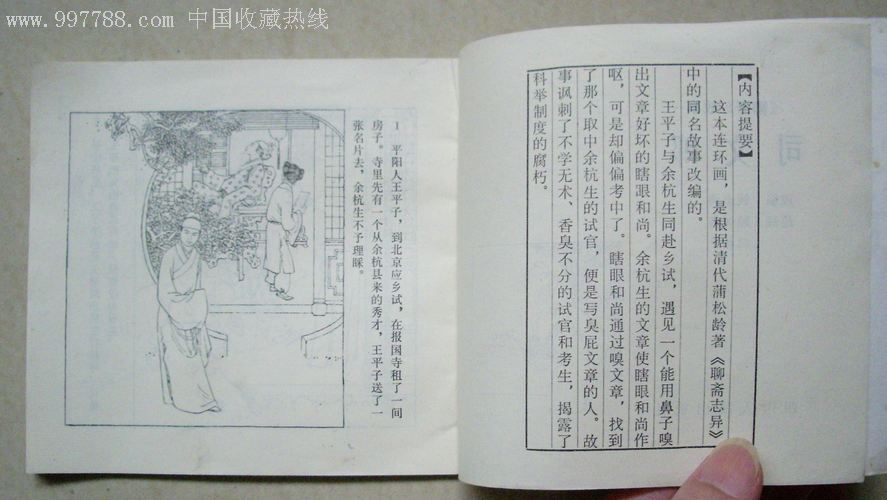 www.997788.com 中国收藏热线
【内容提要】
这本连环画，是根据清代蒲松龄著《聊斋志异》
中的同名故事改编的。
王平子与余杭生同赴乡试，遇见一个能用鼻子嗅
出文章好坏的瞎眼和尚。余杭生的文章使瞎眼和尚作
呕，可是却偏偏考中了。瞎眼和尚通过嗅文章，找到
了那个取中余杭生的试官，便是写臭屁文章的人。故
事讽刺了不学无术、香臭不分的试官和考生，揭露了
科举制度的腐朽。
1 平阳人王平子，到北京应乡试，在报国寺租了一间
房子。寺里先有一个从余杭县来的秀才，王平子送了一
张名片去，余杭生不予理睬。